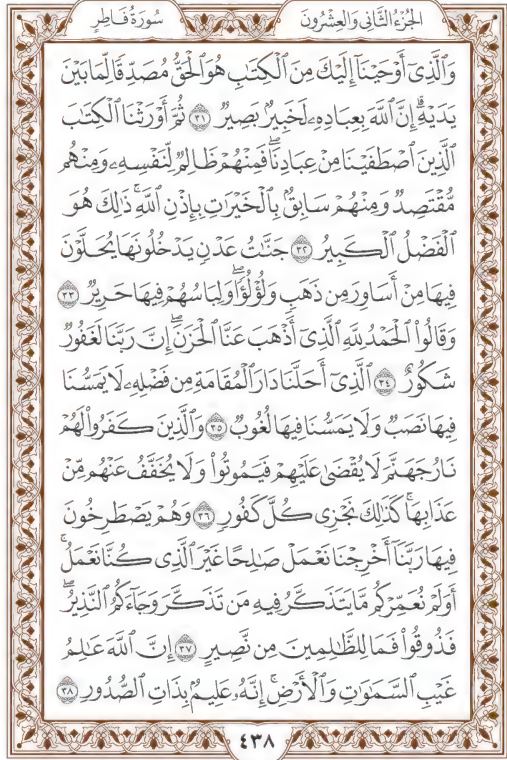 الجزء الثاني والعشرون سورة فاطر
وَٱلَّذِىٓ أَوْحَيْنَآ إِلَيْكَ مِنَ ٱلْكِتَٰبِ هُوَ ٱلْحَقُّ مُصَدِّقًا لِّمَا بَيْنَ
يَدَيْهِۗ إِنَّ ٱللَّهَ بِعِبَادِهِۦ لَخَبِيرٌۢ بَصِيرٌ ٣١ ثُمَّ أَوْرَثْنَا ٱلْكِتَٰبَ
ٱلَّذِينَ ٱصْطَفَيْنَا مِنْ عِبَادِنَاۖ فَمِنْهُمْ ظَالِمٌ لِّنَفْسِهِۦ وَمِنْهُم
مُّقْتَصِدٌ وَمِنْهُمْ سَابِقٌۢ بِٱلْخَيْرَٰتِ بِإِذْنِ ٱللَّهِۚ ذَٰلِكَ هُوَ
ٱلْفَضْلُ ٱلْكَبِيرُ ٣٢ جَنَّٰتُ عَدْنٍ يَدْخُلُونَهَا يُحَلَّوْنَ
فِيهَا مِنْ أَسَاوِرَ مِن ذَهَبٍ وَلُؤْلُؤًاۖ وَلِبَاسُهُمْ فِيهَا حَرِيرٌ ٣٣
وَقَالُوا۟ ٱلْحَمْدُ لِلَّهِ ٱلَّذِىٓ أَذْهَبَ عَنَّا ٱلْحَزَنَۖ إِنَّ رَبَّنَا لَغَفُورٌ
شَكُورٌ ٣٤ ٱلَّذِىٓ أَحَلَّنَا دَارَ ٱلْمُقَامَةِ مِن فَضْلِهِۦ لَا يَمَسُّنَا
فِيهَا نَصَبٌ وَلَا يَمَسُّنَا فِيهَا لُغُوبٌ ٣٥ وَٱلَّذِينَ كَفَرُوا۟ لَهُمْ
نَارُ جَهَنَّمَ لَا يُقْضَىٰ عَلَيْهِمْ فَيَمُوتُوا۟ وَلَا يُخَفَّفُ عَنْهُم مِّنْ
عَذَابِهَاۚ كَذَٰلِكَ نَجْزِى كُلَّ كَفُورٍ ٣٦ وَهُمْ يَصْطَرِخُونَ
فِيهَا رَبَّنَآ أَخْرِجْنَا نَعْمَلْ صَٰلِحًا غَيْرَ ٱلَّذِى كُنَّا نَعْمَلُۚ
أَوَلَمْ نُعَمِّرْكُم مَّا يَتَذَكَّرُ فِيهِ مَن تَذَكَّرَ وَجَآءَكُمُ ٱلنَّذِيرُۖ
فَذُوقُوا۟ فَمَا لِلظَّٰلِمِينَ مِن نَّصِيرٍ ٣٧ إِنَّ ٱللَّهَ عَٰلِمُ
غَيْبِ ٱلسَّمَٰوَٰتِ وَٱلْأَرْضِۚ إِنَّهُۥ عَلِيمٌۢ بِذَاتِ ٱلصُّدُورِ ٣٨
٤٣٨